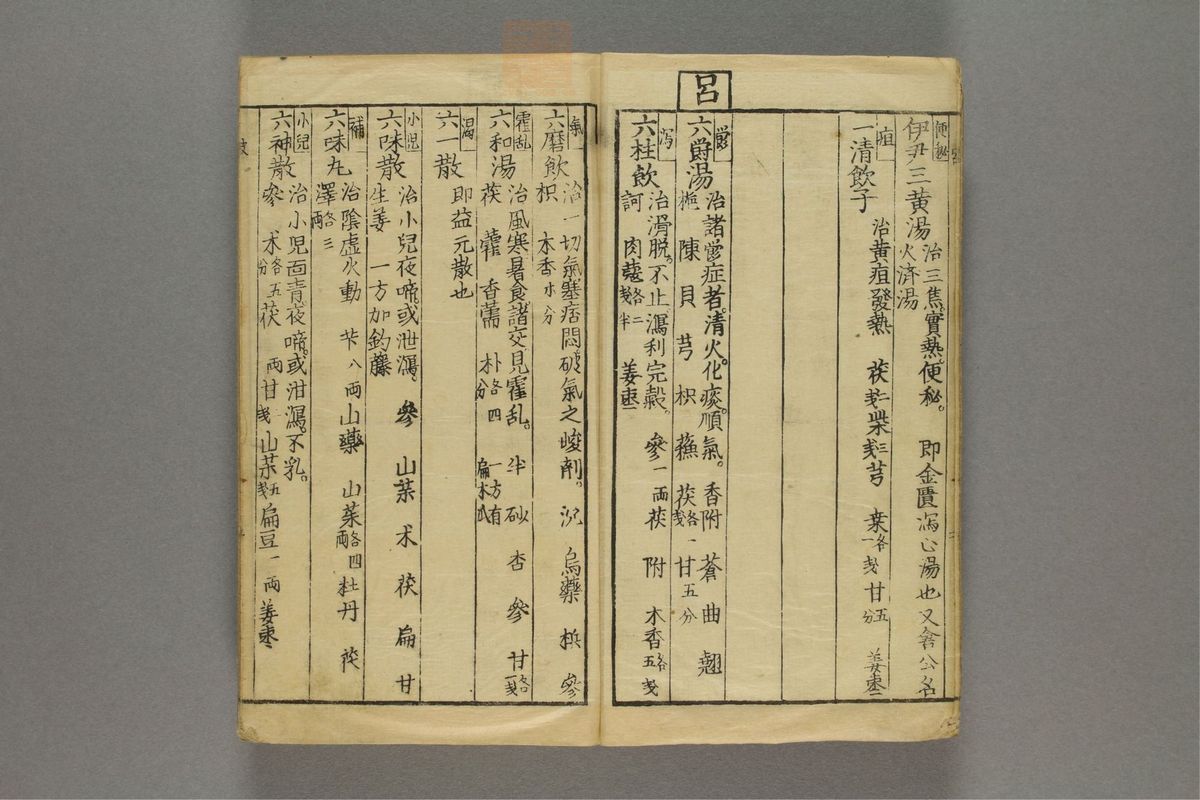 便秘
伊尹三黄湯 治三焦實熱便秘。即金匱瀉心湯也又倉公名
火済湯
疸
一清飲子 治黄疸發熱 茯二戔柴三戔芎 桒各一戔甘五分 姜枣二
呂
鬱
六爵湯 治諸鬱症者清火化痰順氣。香附 蒼 曲 翹
梔 陳 貝 芎 枳 蘓 茯各一戔甘五分
瀉
六柱飲 治滑脱不止瀉利完穀。參一兩茯 附 木香各五戔
訶 肉蔲各二戔半 姜枣二
氣
六磨飲 治一切氣塞痞悶破氣之峻剤。沉 烏藥 梹 參
枳 木香
霍乱
六和湯 治風寒暑食諸交見霍乱。半 砂 杏 參 甘各一戔
茯 藿 香薷 朴各四分 一方有扁木瓜
渇
六一散 即益元散也
小児
六味散 治小兒夜啼或泄瀉。參 山茱 术 茯 扁 甘
生姜 一方加釣藤
補
六味丸 治陰虚火動 芐八兩山藥 山茱各四兩牡丹 茯
澤各三兩
小兒
六神散 治小児面青夜啼。或泔瀉。不乳。
參 术各五分茯 兩甘 戔山茱五戔扁豆一兩姜枣